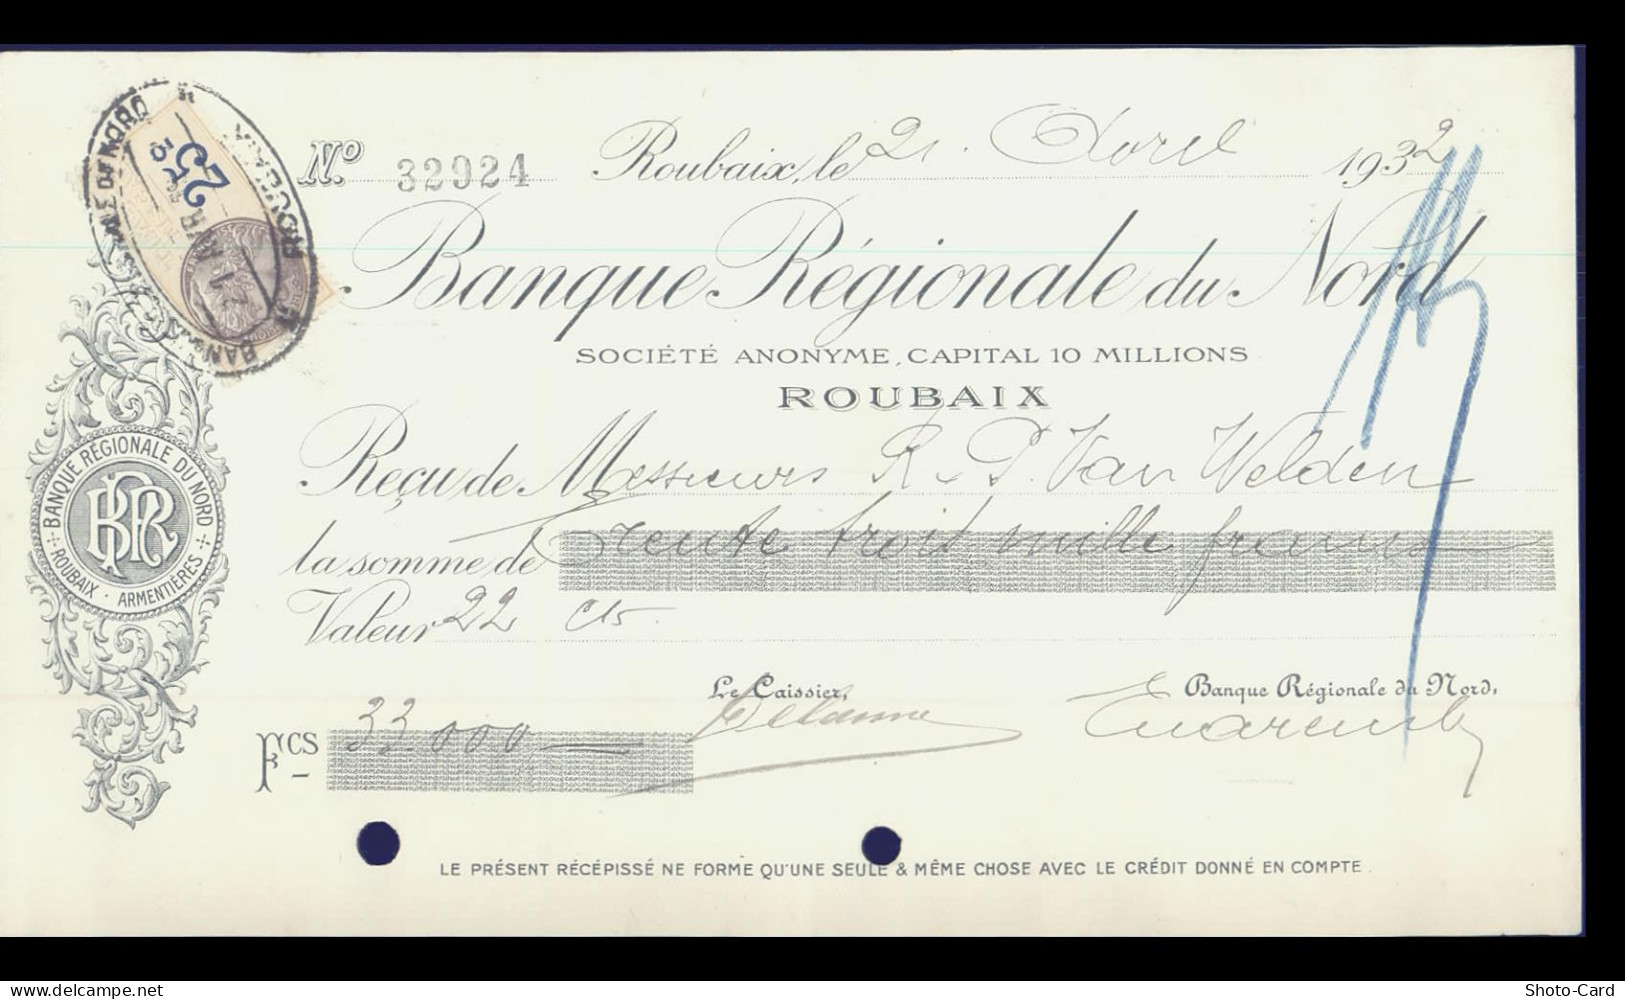 No. 32924 Roubaix, le 21 Avril 1932
Banque Régionale du Nord
SOCIÉTÉ ANONYME, CAPITAL 10 MILLIONS
ROUBAIX
Reçu de Messieurs R & P. Van Welden
la somme de Trente trois mille francs
Valeur 22 Ct
Le Caissier, Banque Régionale du Nord,
FCS 33.000
LE PRÉSENT RÉCÉPISSÉ NE FORME QU'UNE SEULE & MÊME CHOSE AVEC LE CRÉDIT DONNÉ EN COMPTE.
BANQUE RÉGIONALE DU NORD
ROUBAIX · ARMENTIÈRES
BRN
25
ROUBAIX
DU NORD
21 AVR
www.delcampe.net Shoto-Card